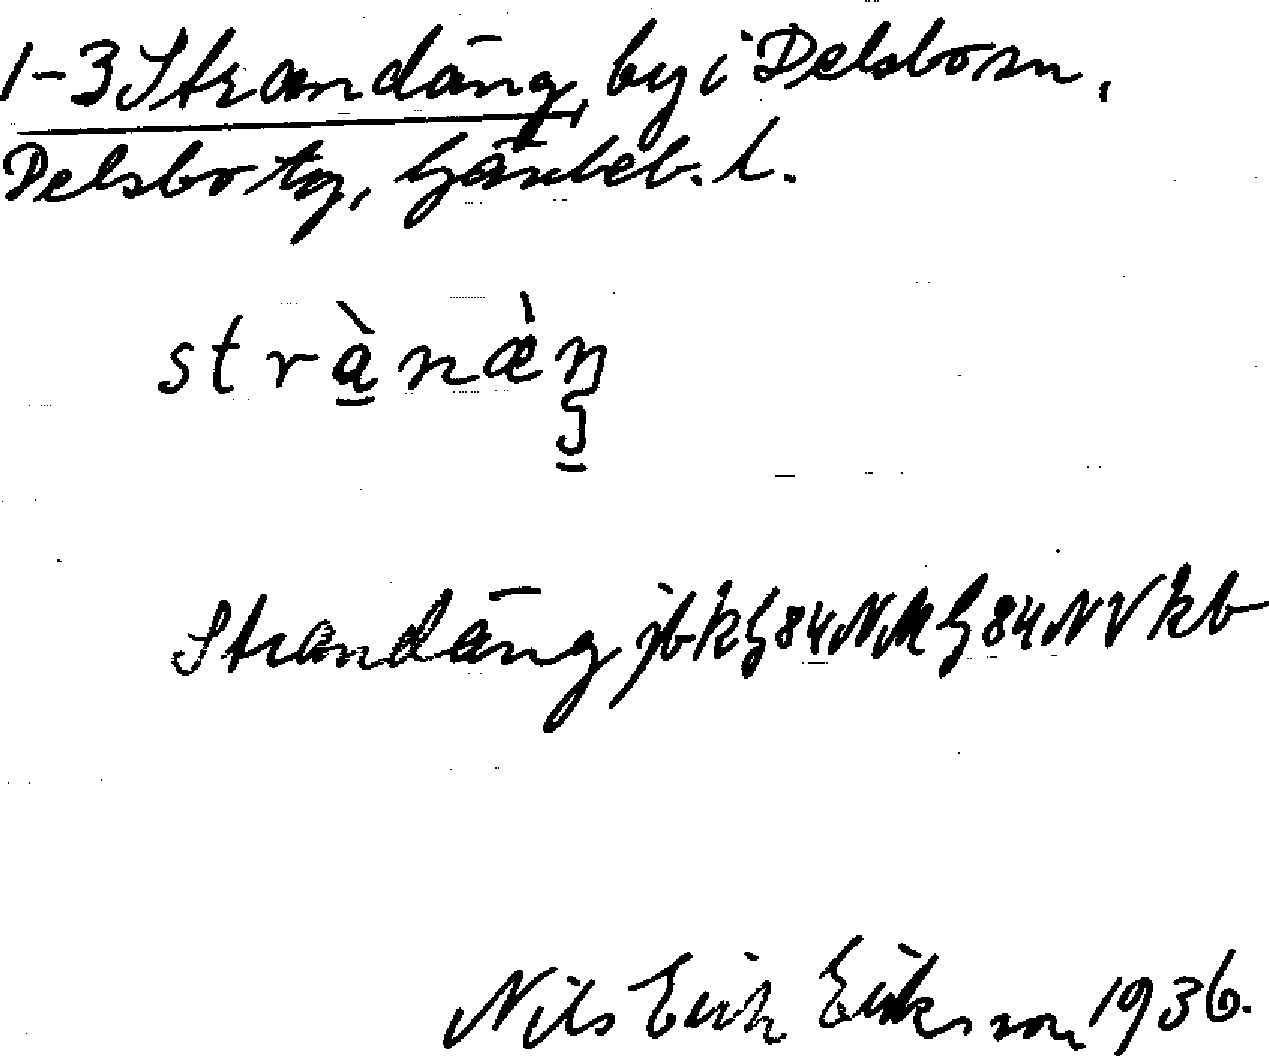 1-3 Strandäng, by i Delsbo sn,
Delsbo tg, Gävleb. l.
strànæ̀ŋ
Strandäng jbk G 84 NV kb
Nils Erik Eriksson 1936.